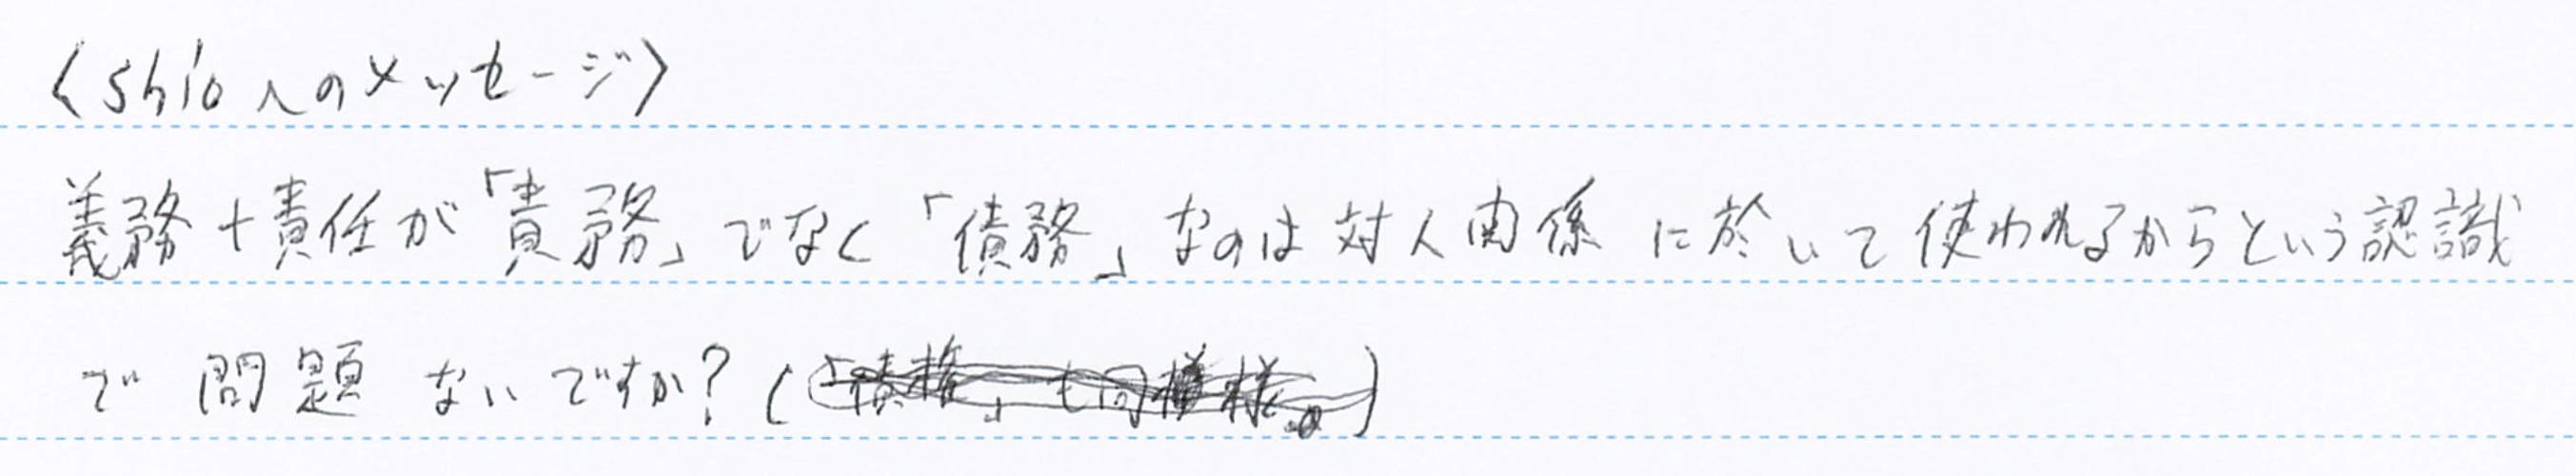 〈shioへのメッセージ〉
義務+責任が「責務」でなく「債務」なのは対人関係に於いて使われるからという認識
で問題ないですか?(「債権」も同様。)